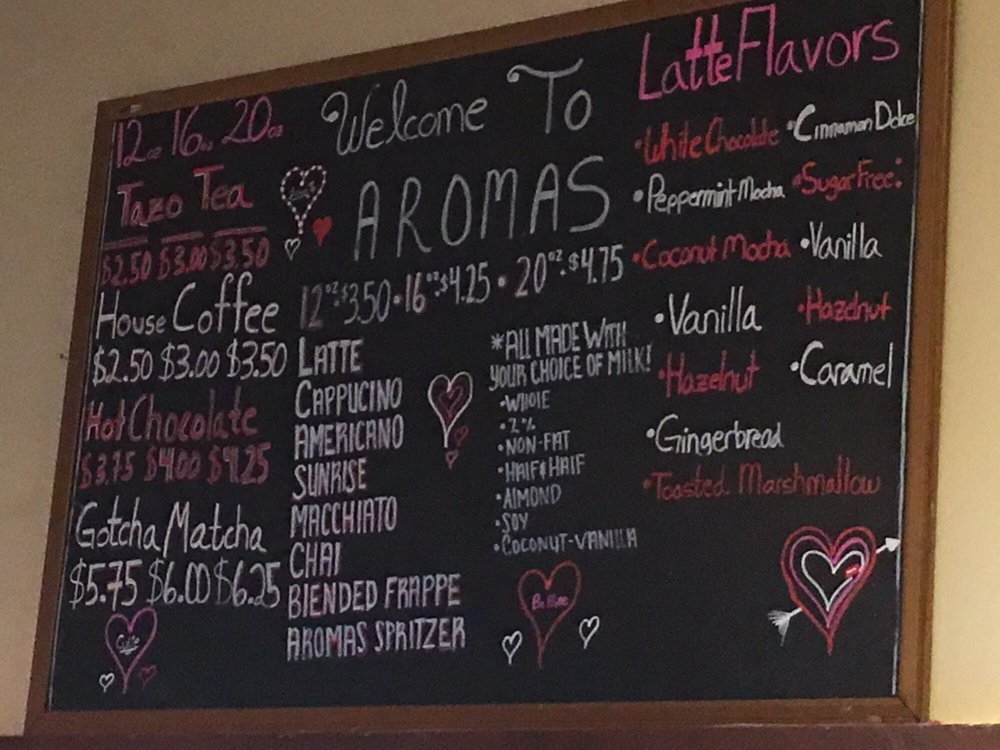 12oz 16oz 20oz
Tazo Tea
$2.50 $3.00 $3.50
House Coffee
$2.50 $3.00 $3.50
Hot Chocolate
$3.75 $4.00 $4.25
Gotcha Matcha
$5.75 $6.00 $6.25
Cutie
Welcome To
AROMAS
12oz:$3.50 • 16oz:$4.25 • 20oz:$4.75
LATTE
CAPPUCINO
AMERICANO
SUNRISE
MACCHIATO
CHAI
BLENDED FRAPPE
AROMAS SPRITZER
*ALL MADE WITH
YOUR CHOICE OF MILK!
•WHOLE
•2%
•NON-FAT
•HALF&HALF
•ALMOND
•SOY
•COCONUT-VANILLA
Be Mine
Latte Flavors
•White Chocolate
•Peppermint Mocha
•Coconut Mocha
•Vanilla
•Hazelnut
•Gingerbread
•Toasted Marshmallow
•Cinnamon Dolce
•Sugar Free:
•Vanilla
•Hazelnut
•Caramel